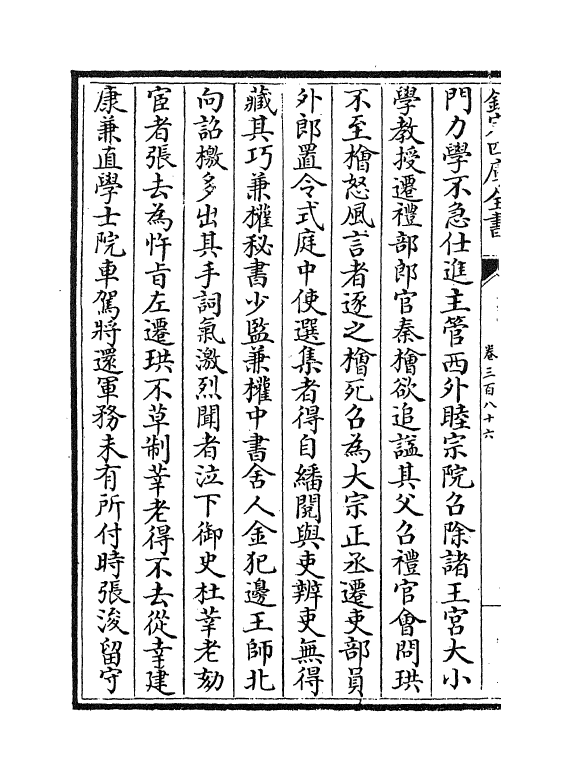 欽定四庫全書
卷三百八十六
門力學不急仕進主管西外睦宗院召除諸王宮大小
學教授遷禮部郎官秦檜欲追諡其父召禮官會問珙
不至檜怒風言者逐之檜死召為大宗正丞遷吏部員
外郎置令式庭中使選集者得自繙閱與吏辨吏無得
藏其巧兼權秘書少監兼權中書舍人金犯邊王師北
向詔檄多出其手詞氣激烈聞者泣下御史杜莘老劾
宦者張去為忤旨左遷珙不草制莘老得不去從幸建
康兼直學士院車駕將還軍務未有所付時張浚留守